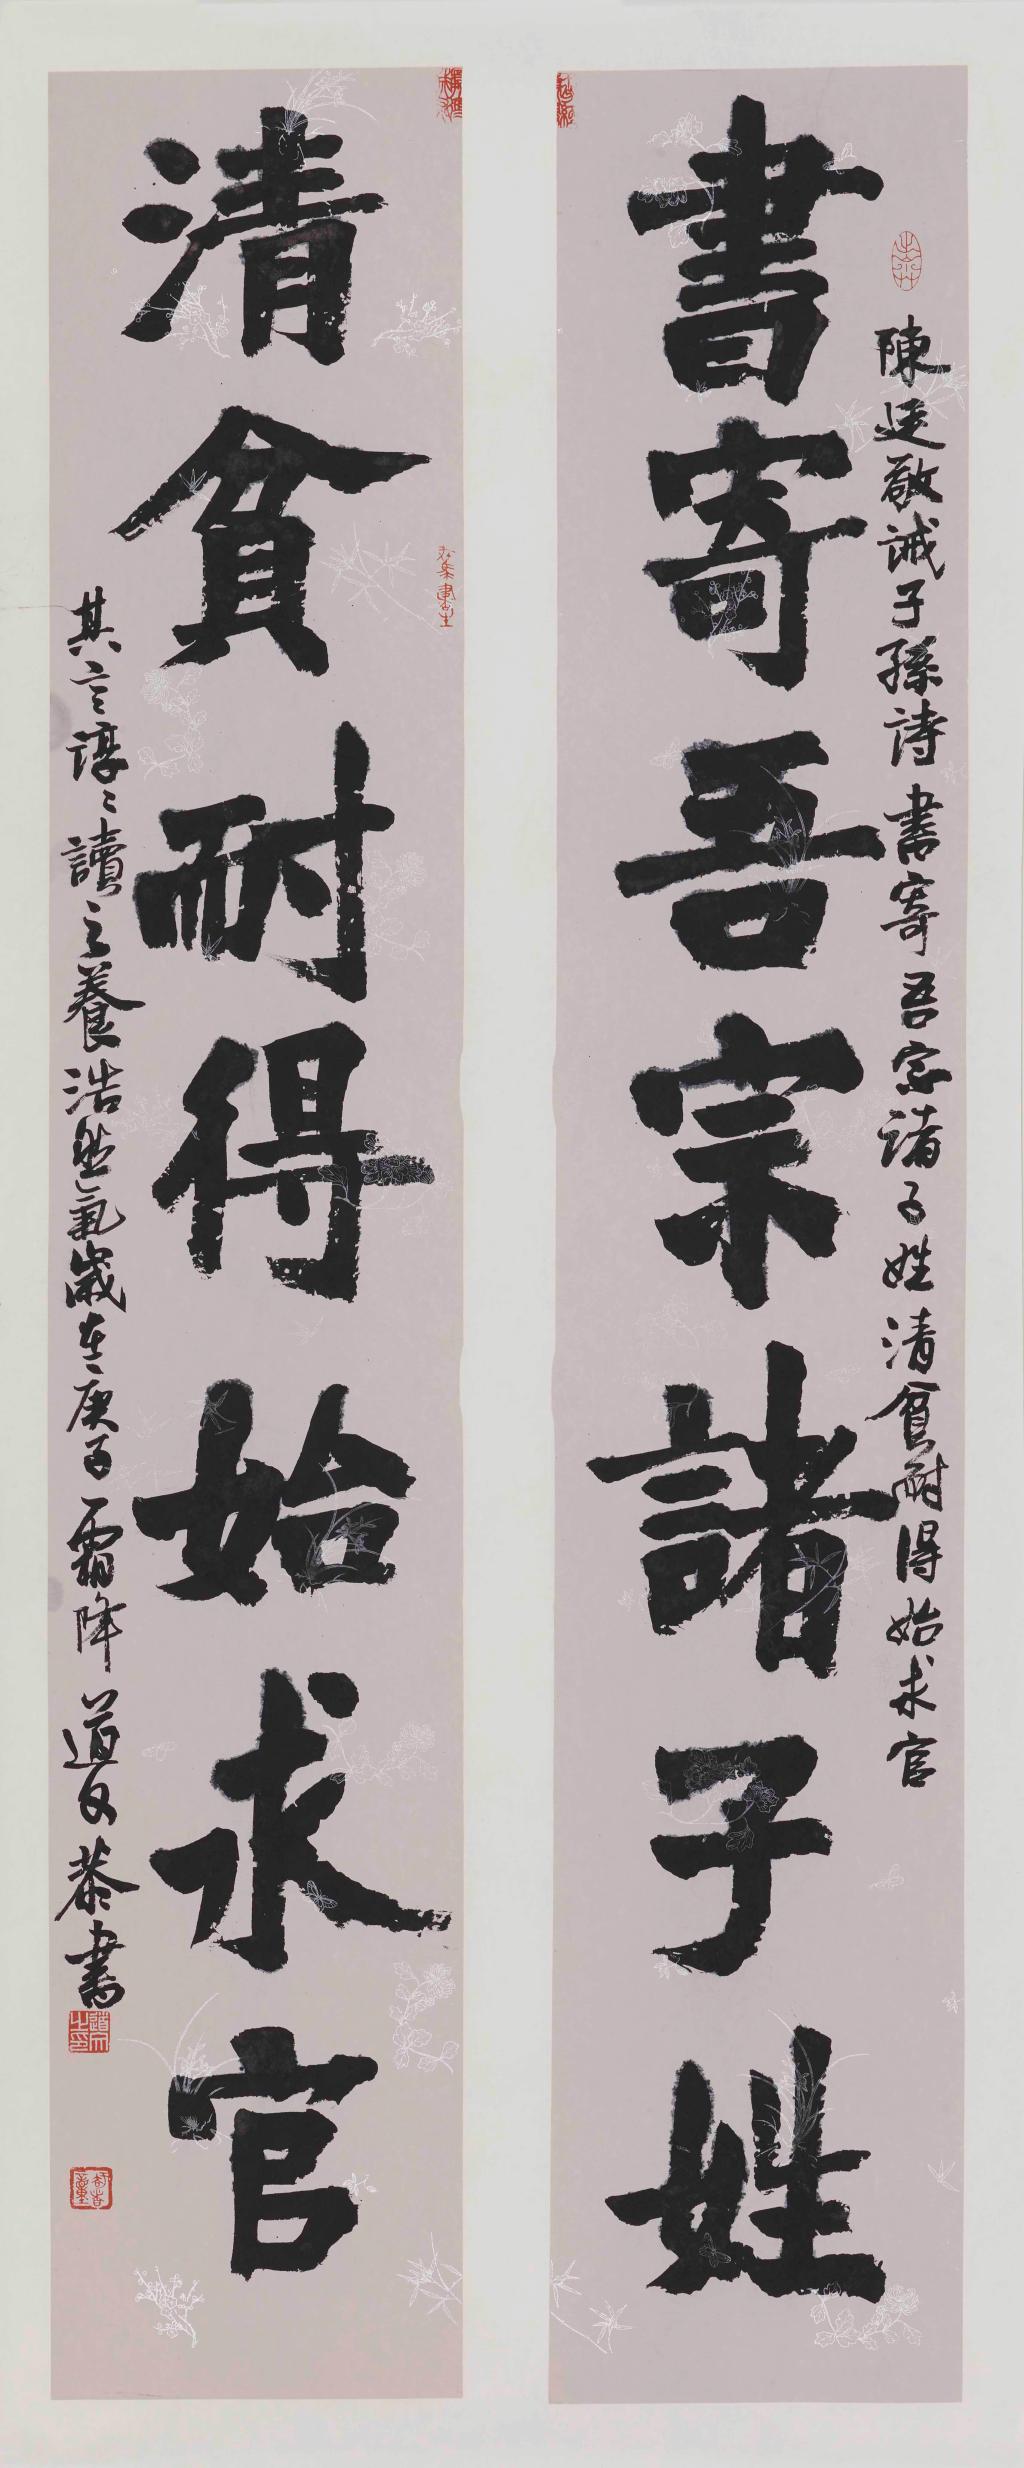 書寄吾宗諸子姓
陳廷敬誡子孫詩書寄吾宗諸子姓清貧耐得始求官
清貧耐得始求官
其言諄諄讀之養浩然氣歲在庚子霜降道文恭書
道文之印